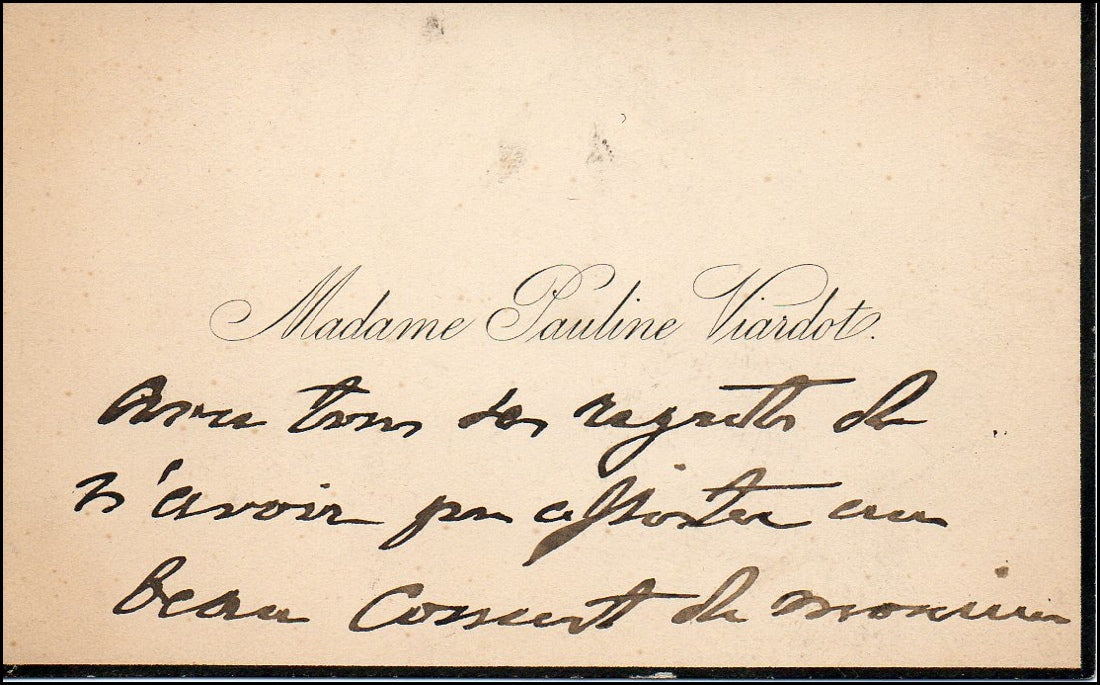 Madame Pauline Viardot.
avec tous ses regrets de
n'avoir pu assister au
beau Concert de monsieur